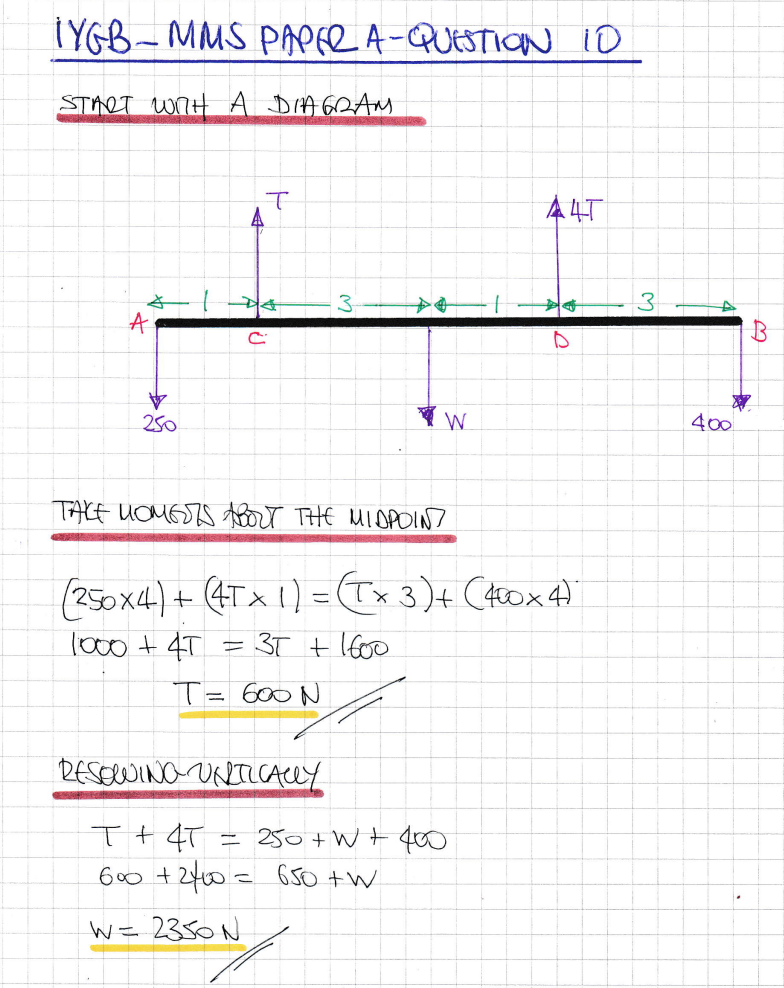 IYGB - MMS PAPER A - QUESTION 10
START WITH A DIAGRAM
T
4T
1 3 1 3
A C D B
250 W 400
TAKE MOMENTS ABOUT THE MIDPOINT
(250×4) + (4T × 1) = (T × 3) + (400 × 4)
1000 + 4T = 3T + 1600
T = 600 N
RESOLVING VERTICALLY
T + 4T = 250 + W + 400
600 + 2400 = 650 + W
W = 2350 N